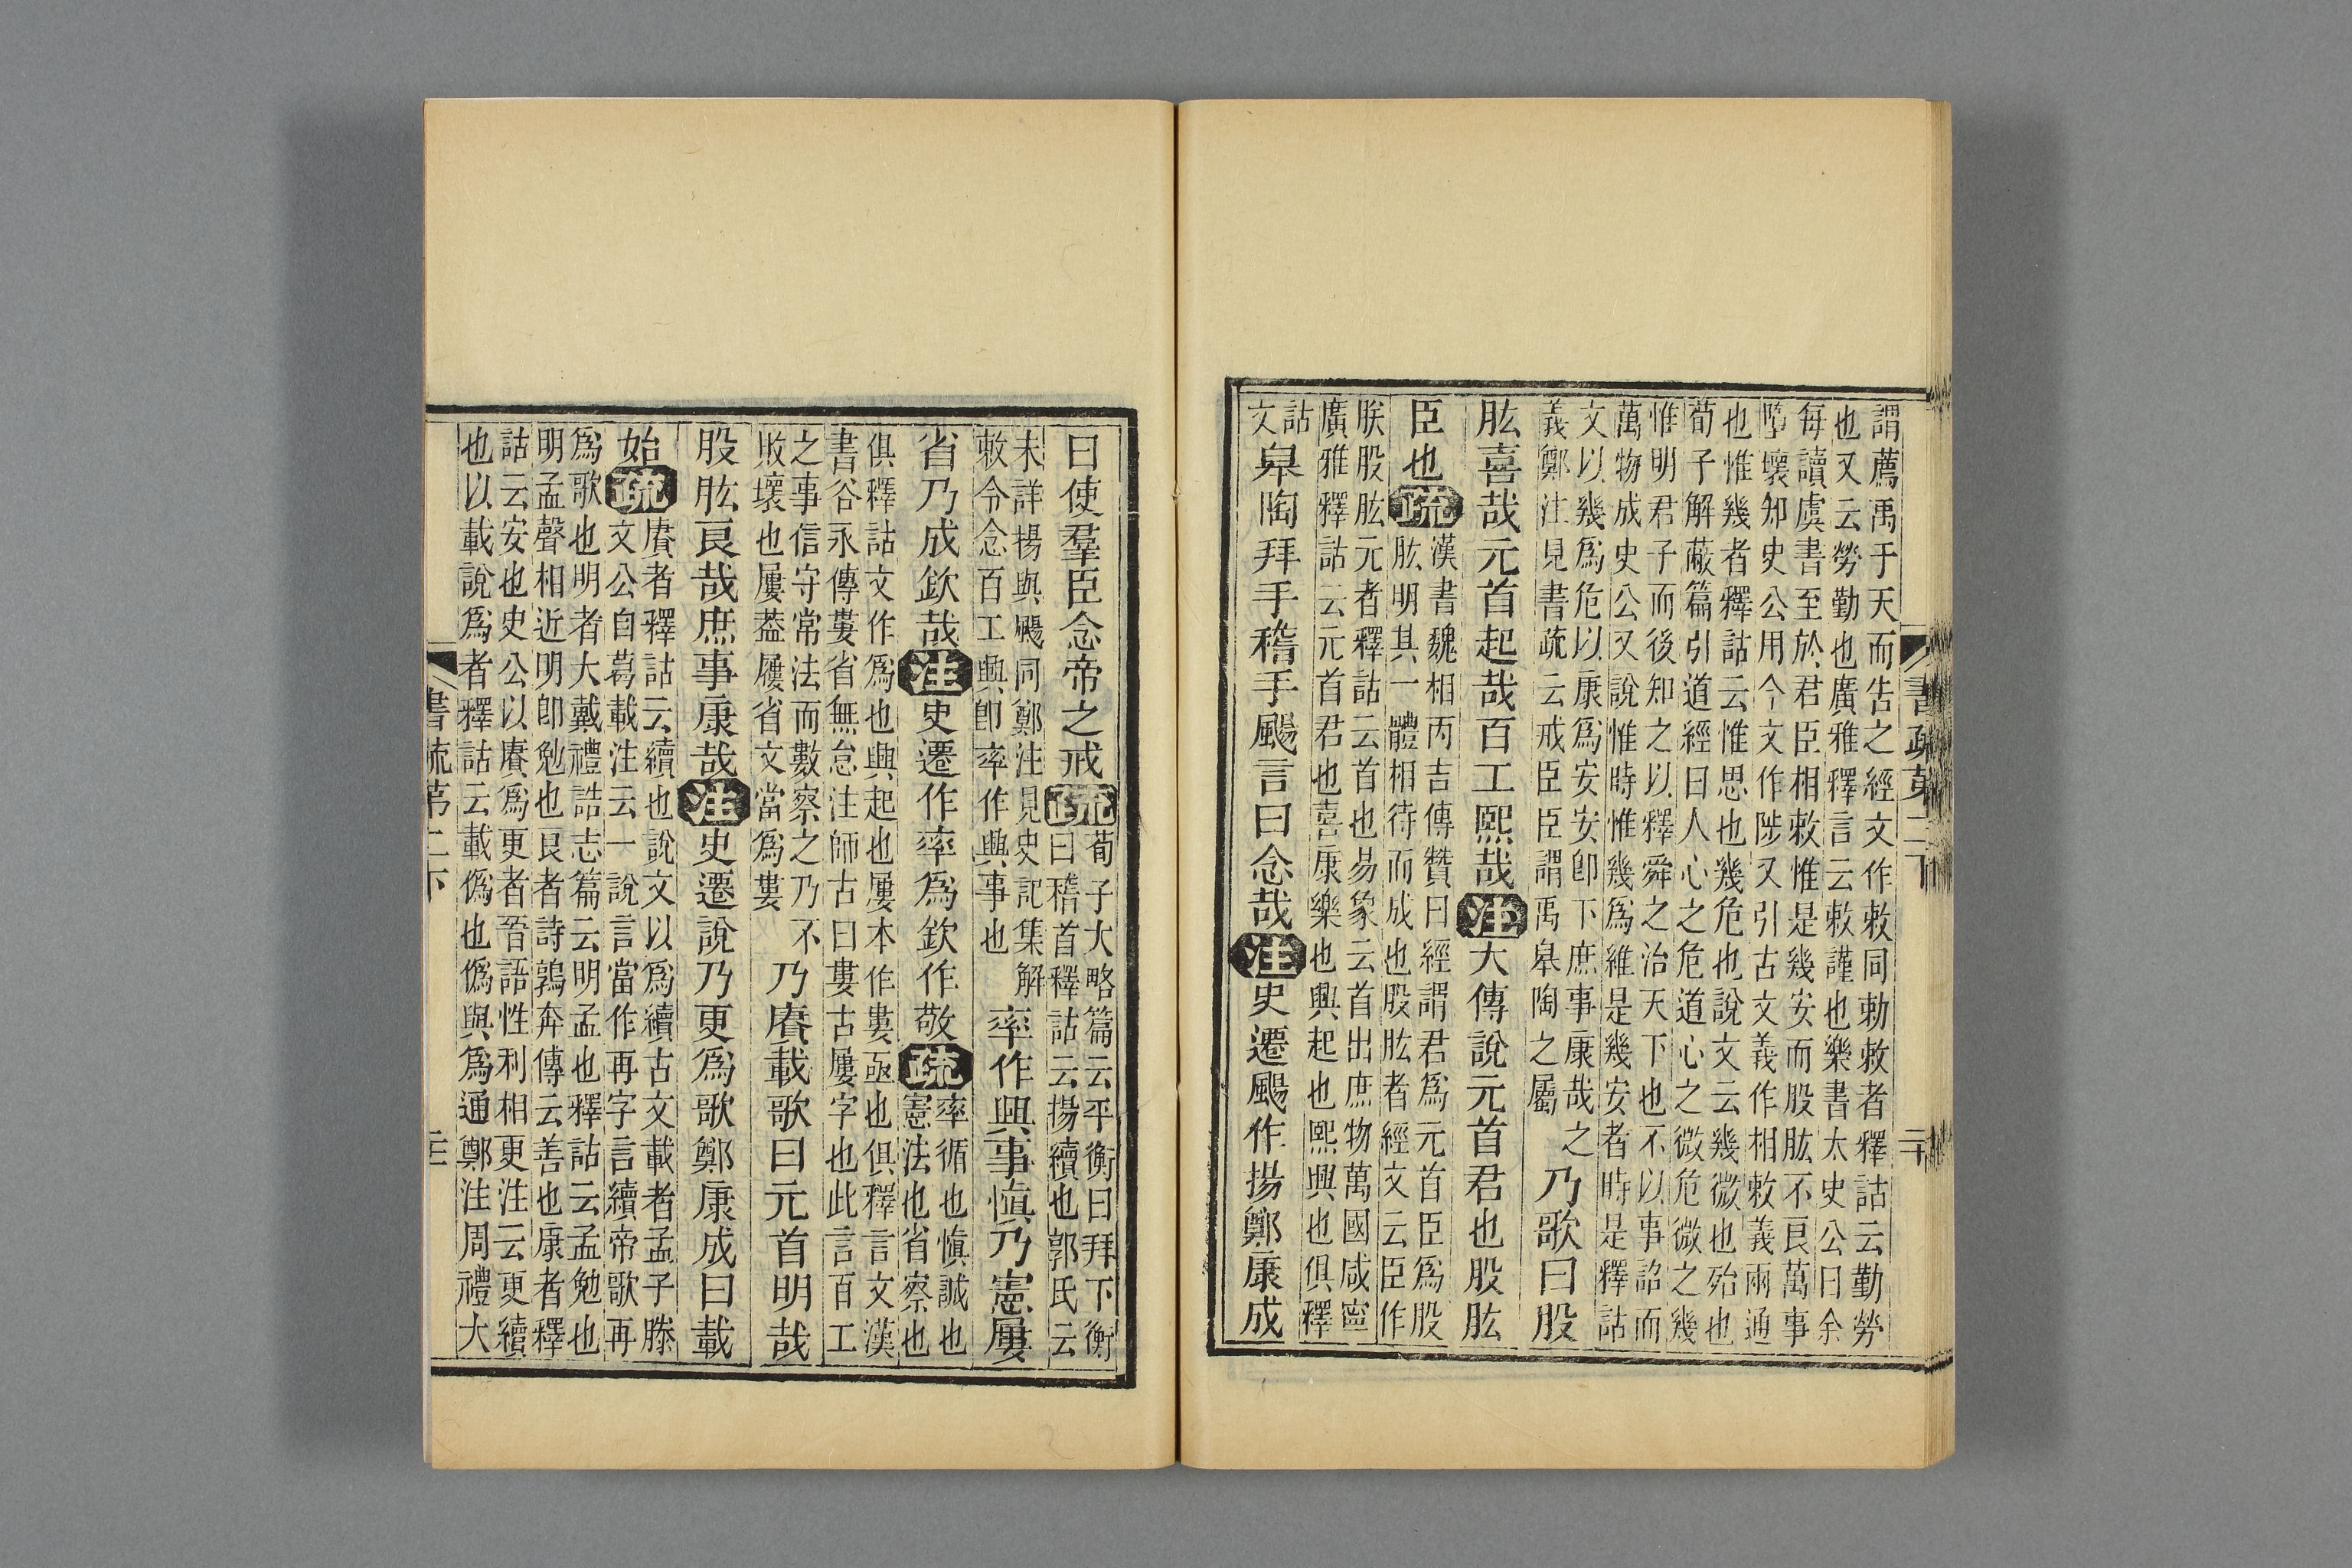 謂薦禹于天而告之經文作敕同勅敕者釋詁云勤勞
也又云勞勤也廣雅釋言云敕謹也樂書太史公曰余
每讀虞書至於君臣相敕惟是幾安而股肱不良萬事
墮壞知史公用今文作陟又引古文義作相敕義兩通
也惟幾者釋詁云惟思也幾危也說文云幾微也殆也
荀子解蔽篇引道經曰人心之危道心之微危微之幾
惟明君子而後知之以釋舜之治天下也不以事詔而
萬物成史公又說惟時惟幾爲維是幾安者時是釋詁
文以幾爲危以康爲安安卽下庶事康哉之
義鄭注見書疏云戒臣臣謂禹皋陶之屬
乃歌曰股
肱喜哉元首起哉百工熙哉注大傳說元首君也股肱
臣也疏
漢書魏相丙吉傳贊曰經謂君爲元首臣爲股
肱明其一體相待而成也股肱者經文云臣作
朕股肱元者釋詁云首也易象云首出庶物萬國咸寍
廣雅釋詁云元首君也喜康樂也興起也熙興也俱釋
詁
文
皋陶拜手稽手颺言曰念哉注史遷颺作揚鄭康成
書疏第二下
二十
曰使羣臣念帝之戒疏
荀子大略篇云平衡曰拜下衡
曰稽首釋詁云揚續也郭氏云
未詳揚與颺同鄭注見史記集解
敕令念百工興卽率作興事也
率作興事愼乃憲屢
省乃成欽哉注史遷作率爲欽作敬疏
率循也愼誠也
憲法也省察也
俱釋詁文作爲也興起也屢本作婁亟也俱釋言文漢
書谷永傳婁省無怠注師古曰婁古屢字也此言百工
之事信守常法而數察之乃不
敗壞也屢葢屨省文當爲婁
乃賡載歌曰元首明哉
股肱良哉庶事康哉注史遷說乃更爲歌鄭康成曰載
始疏
賡者釋詁云續也說文以爲續古文載者孟子滕
文公自葛載注云一說言當作再字言續帝歌再
爲歌也明者大戴禮誥志篇云明孟也釋詁云孟勉也
明孟聲相近明卽勉也良者詩鶉奔傳云善也康者釋
詁云安也史公以賡爲更者晉語性利相更注云更續
也以載說爲者釋詁云載僞也僞與爲通鄭注周禮大
書疏第二下